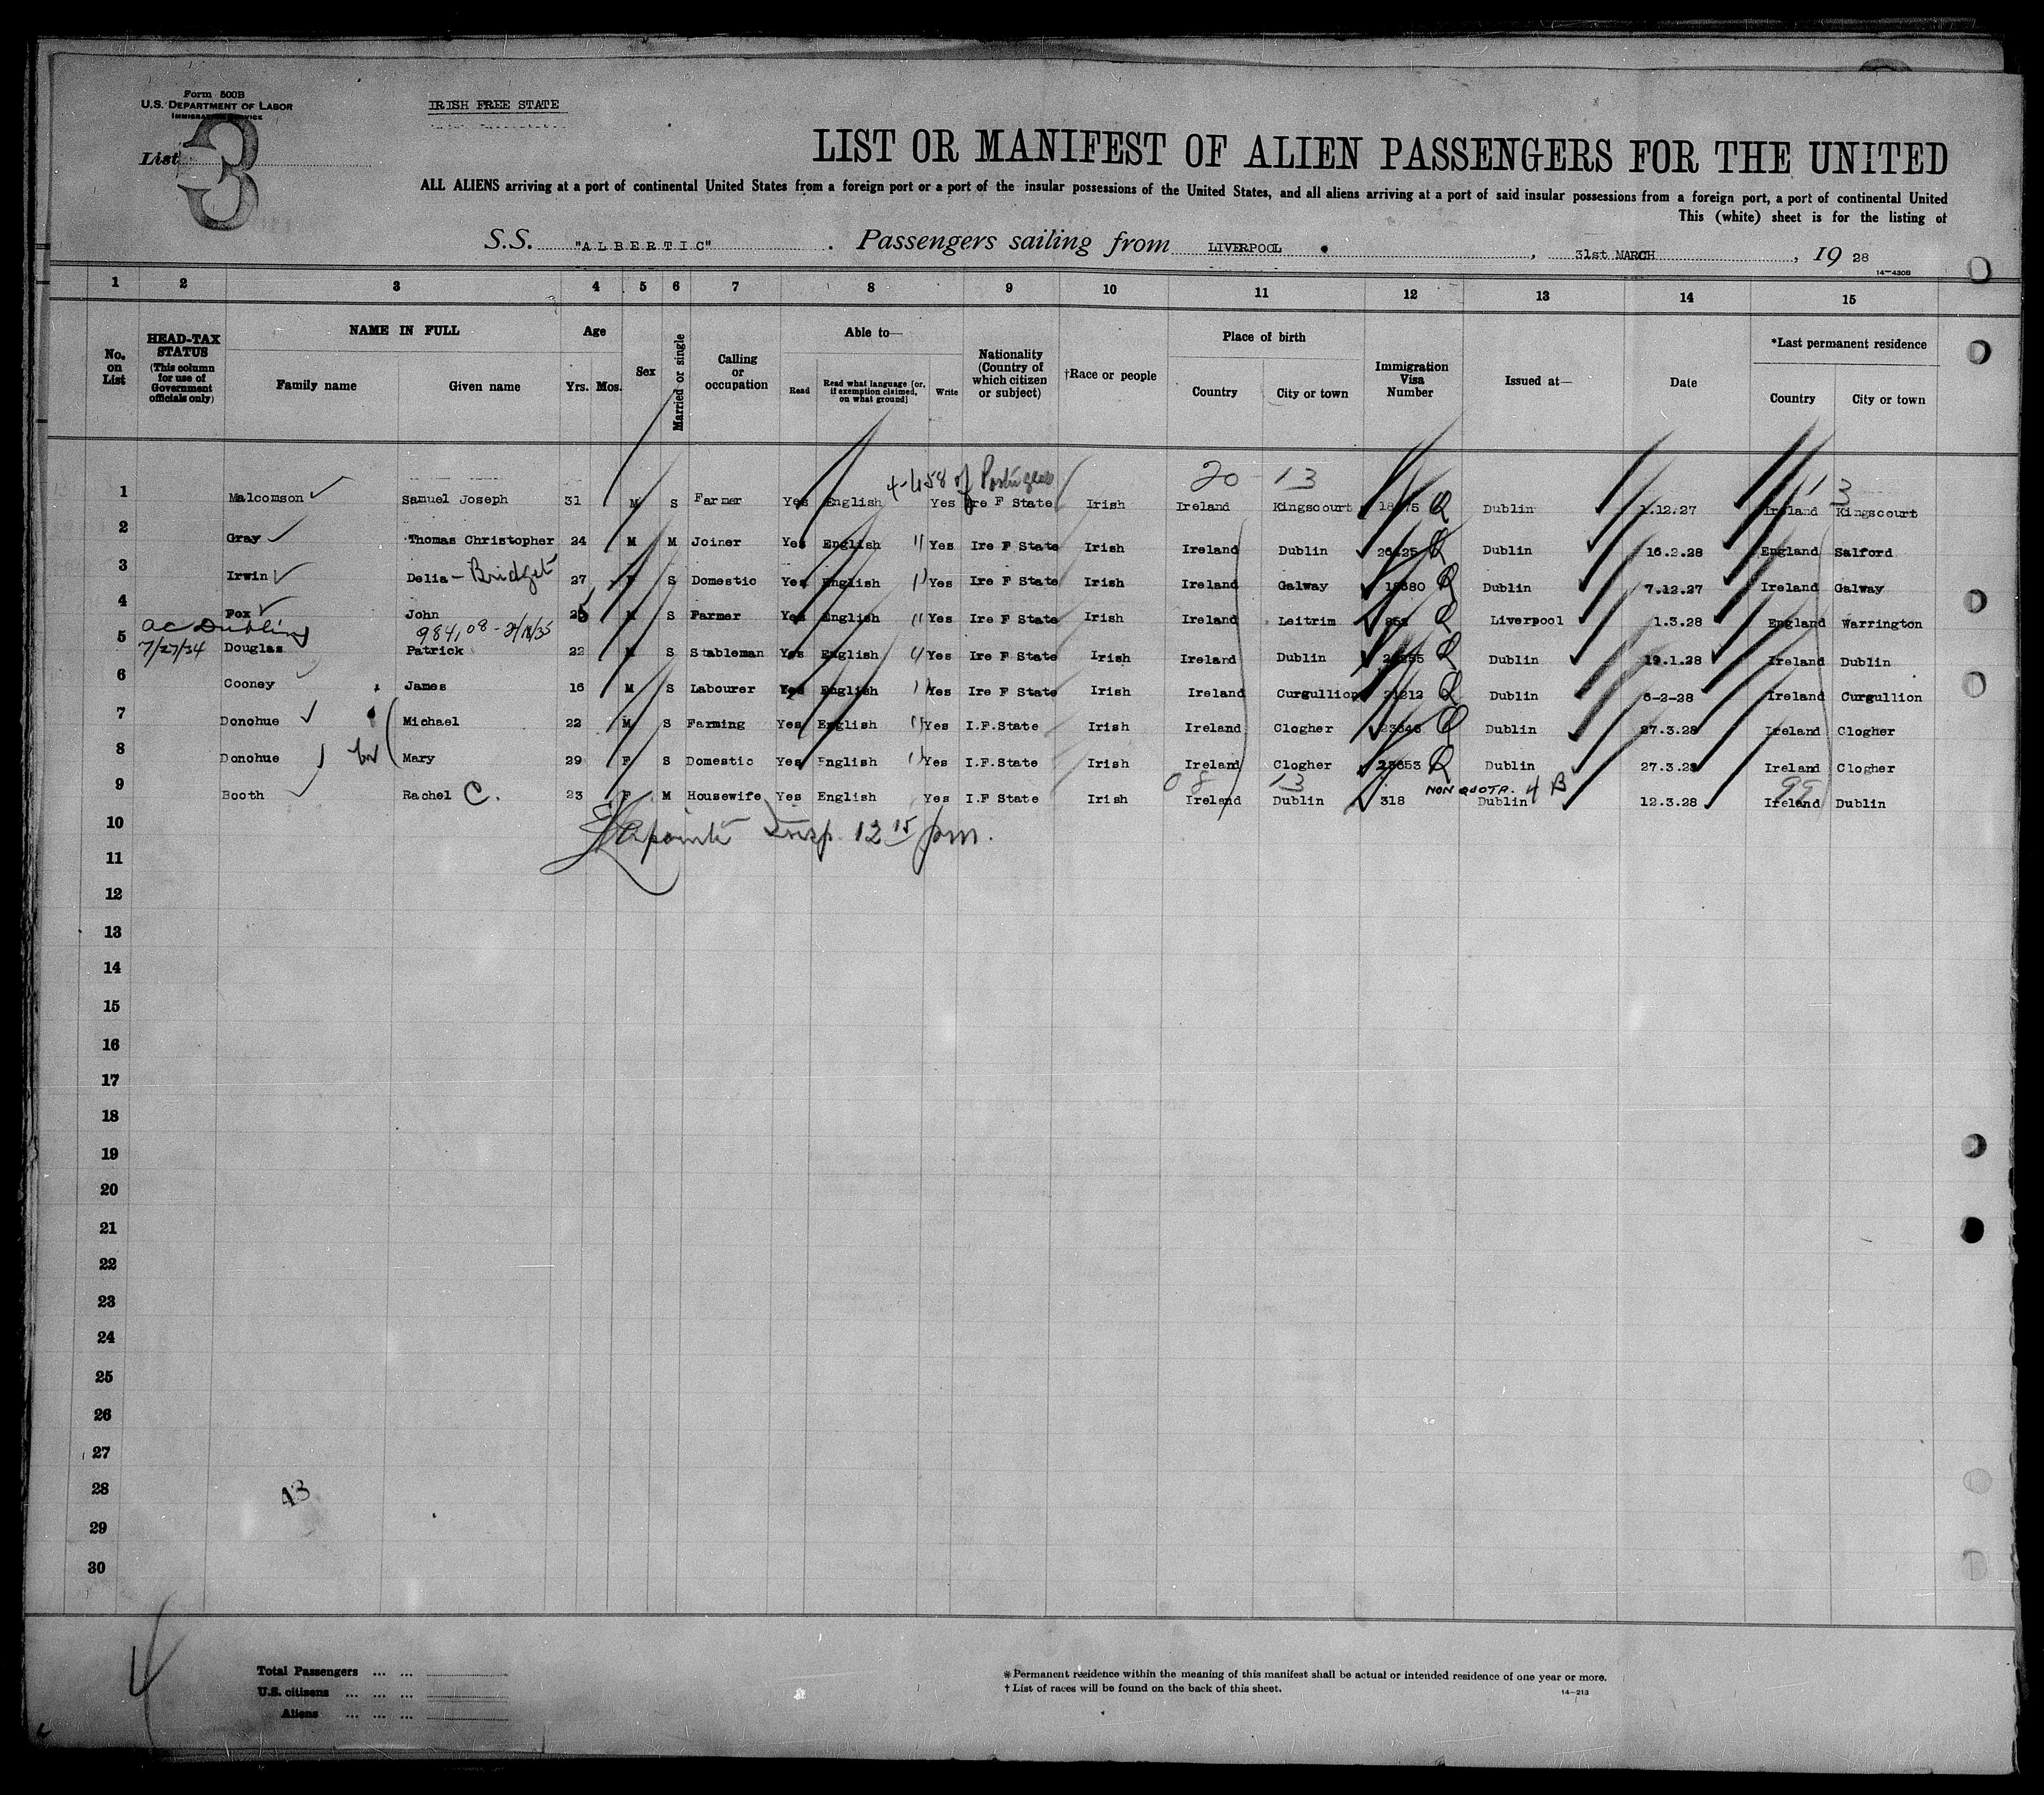 Form 500B
U.S. DEPARTMENT OF LABOR
IMMIGRATION SERVICE
List 3
IRISH FREE STATE
LIST OR MANIFEST OF ALIEN PASSENGERS FOR THE UNITED
ALL ALIENS arriving at a port of continental United States from a foreign port or a port of the insular possessions of the United States, and all aliens arriving at a port of said insular possessions from a foreign port, a port of continental United
This (white) sheet is for the listing of
S.S. "ALBERTIC" . Passengers sailing from LIVERPOOL , 31st MARCH , 19 28
14-430B
1 2 3 4 5 6 7 8 9 10 11 12 13 14 15
No. on List
HEAD-TAX STATUS (This column for use of Government officials only)
NAME IN FULL
Family name Given name
Age
Yrs. Mos.
Sex
Married or single
Calling or occupation
Able to—
Read Read what language [or, if exemption claimed, on what ground] Write
Nationality (Country of which citizen or subject)
†Race or people
Place of birth
Country City or town
Immigration Visa Number
Issued at—
Date
*Last permanent residence
Country City or town
20 13 13
1 Malcomson Samuel Joseph 31 M S Farmer Yes English Yes Ire F State Irish Ireland Kingscourt Q Dublin 1.12.27 Ireland Kingscourt
2 Gray Thomas Christopher 24 M M Joiner Yes English " Yes Ire F State Irish Ireland Dublin Q Dublin 16.2.28 England Salford
3 Irwin Delia - Bridget 27 F S Domestic Yes English " Yes Ire F State Irish Ireland Galway Q Dublin 7.12.27 Ireland Galway
4 Fox John M S Farmer Yes English " Yes Ire F State Irish Ireland Leitrim Q Liverpool 1.3.28 England Warrington
ac Dublin
7/27/34
5 Douglas Patrick 22 M S Stableman Yes English " Yes Ire F State Irish Ireland Dublin Q Dublin 19.1.28 Ireland Dublin
6 Cooney James 16 M S Labourer Yes English " Yes Ire F State Irish Ireland Curgullion Q Dublin 6-2-28 Ireland Curgullion
7 Donohue Michael 22 M S Farming Yes English " Yes I.F.State Irish Ireland Clogher Q Dublin 27.3.28 Ireland Clogher
8 Donohue Mary 29 F S Domestic Yes English " Yes I.F.State Irish Ireland Clogher 23653 Q Dublin 27.3.28 Ireland Clogher
08 13 NON QUOTA. 4 B 99
9 Booth Rachel C. 23 F M Housewife Yes English Yes I.F State Irish Ireland Dublin 318 Dublin 12.3.28 Ireland Dublin
10 Lapointe Insp. 12 15 pm.
11
12
13
14
15
16
17
18
19
20
21
22
23
24
25
26
27
28 43
29
30
Total Passengers ... ...
U.S. citizens ... ... ...
Aliens ... ... ...
* Permanent residence within the meaning of this manifest shall be actual or intended residence of one year or more.
† List of races will be found on the back of this sheet.
14-213